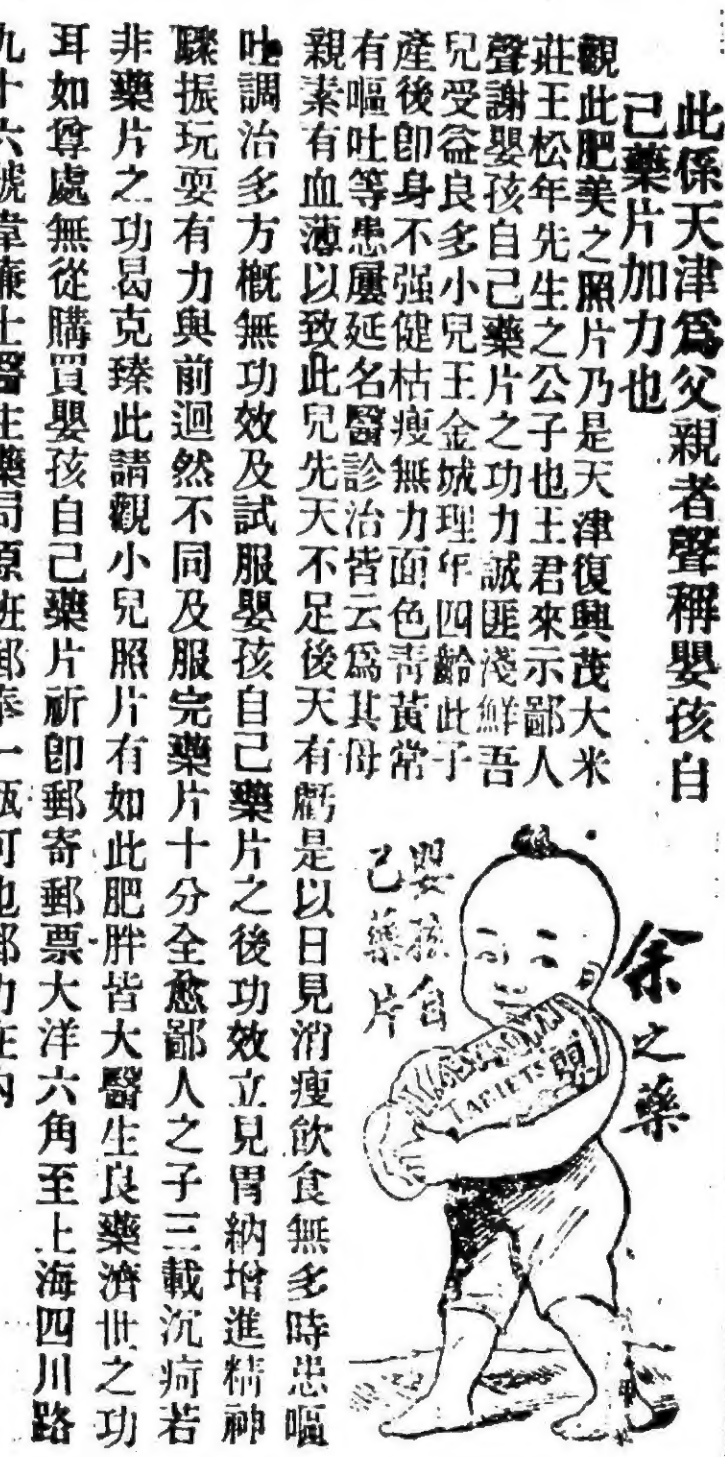 此係天津爲父親者聲稱嬰孩自
己藥片加力也
觀此肥美之照片乃是天津復興茂大米
莊王松年先生之公子也王君來示鄙人
聲謝嬰孩自己藥片之功力誠匪淺鮮吾
兒受益良多小兒王金城理年四齡此子
產後卽身不强健枯瘦無力面色靑黃常
有嘔吐等患屢延名醫診治皆云爲其母
親素有血薄以致此兒先天不足後天有虧是以日見消瘦飲食無多時患嘔
吐調治多方槪無功效及試服嬰孩自己藥片之後功效立見胃納增進精神
驟振玩耍有力與前迥然不同及服完藥片十分全愈鄙人之子三載沉疴若
非藥片之功曷克臻此請觀小兒照片有如此肥胖皆大醫生良藥濟世之功
耳如尊處無從購買嬰孩自己藥片祈卽郵寄郵票大洋六角至上海四川路
九十六號韋廉士醫生藥局原班郵奉一瓶可也郵力在內
余之藥
嬰孩自
己藥片
BABY'S OWN
TABLETS 嬰